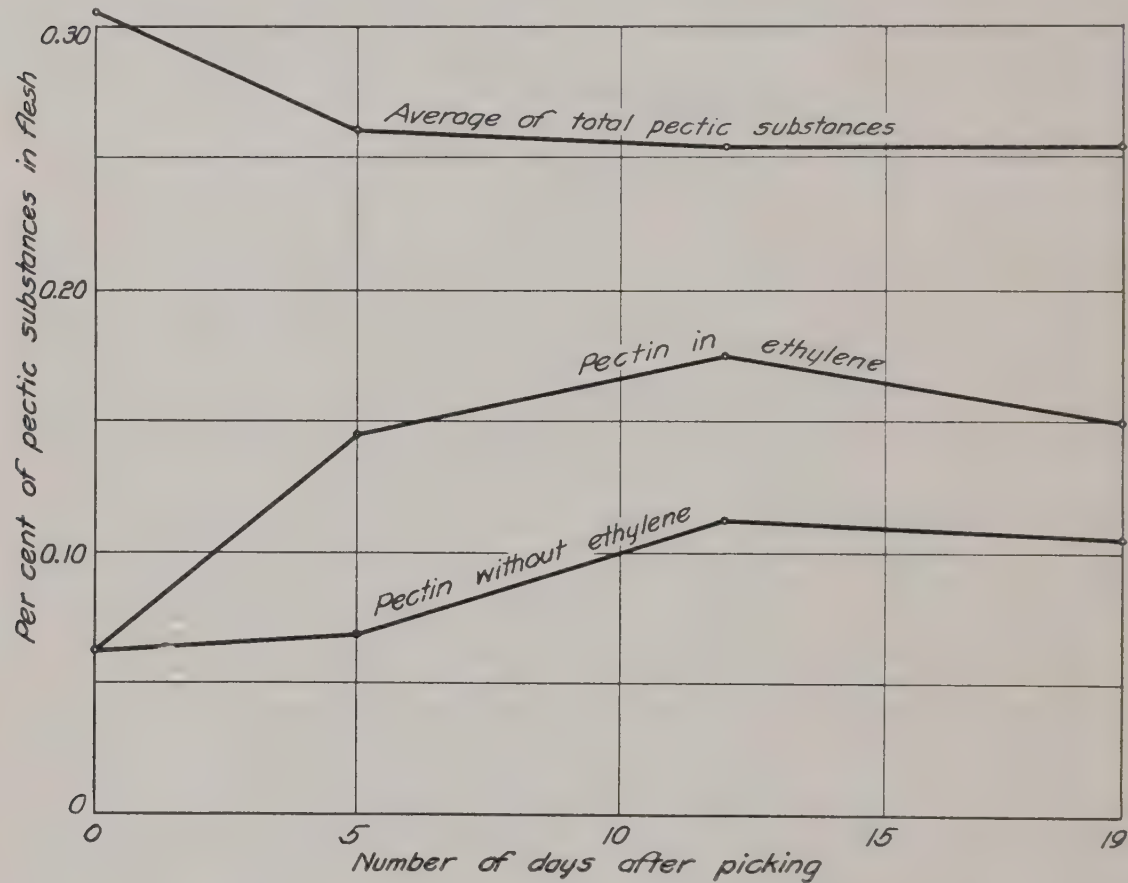 Per cent of pectic substances in flesh
0.30
0.20
0.10
0
Average of total pectic substances
Pectin in ethylene
Pectin without ethylene
0 5 10 15 19
Number of days after picking